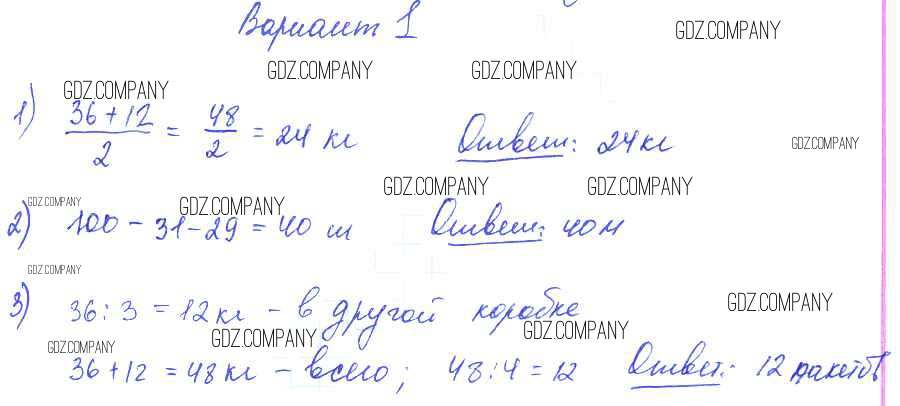 Вариант 1
GDZ.COMPANY
GDZ.COMPANY GDZ.COMPANY
GDZ.COMPANY
1) 36 + 12 / 2 = 48 / 2 = 24 кг Ответ: 24 кг
GDZ.COMPANY
GDZ.COMPANY GDZ.COMPANY
GDZ.COMPANY GDZ.COMPANY
2) 100 - 31 - 29 = 40 м Ответ: 40 м
GDZ.COMPANY
3) 36 : 3 = 12 кг - в другой коробке
GDZ.COMPANY
GDZ.COMPANY GDZ.COMPANY
GDZ.COMPANY
36 + 12 = 48 кг - всего; 48 : 4 = 12 Ответ: 12 пакетов